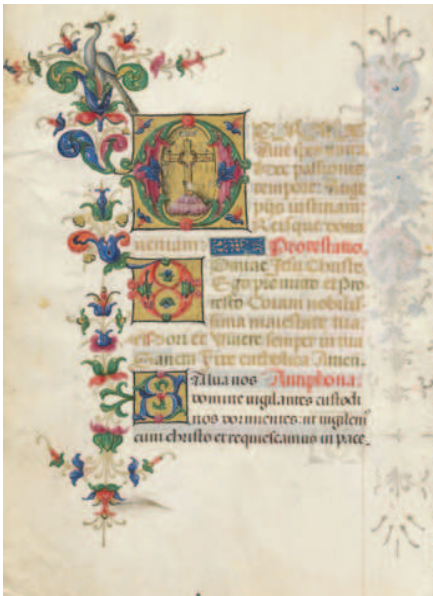 Aue spes unica
passionis
tempore Auge
piis iustitiam
Reisque dona
ueniam: Protestatio.
Domine Jesu Christe
Ego et pro
Coram nobilis
sima maiestate tua
mori et Viuere semper in tua
Fide catholica Amen.
Salua nos Antiphona:
domine uigilantes custodi
nos dormientes: ut uigilem
cum christo et requiescamus in pace.